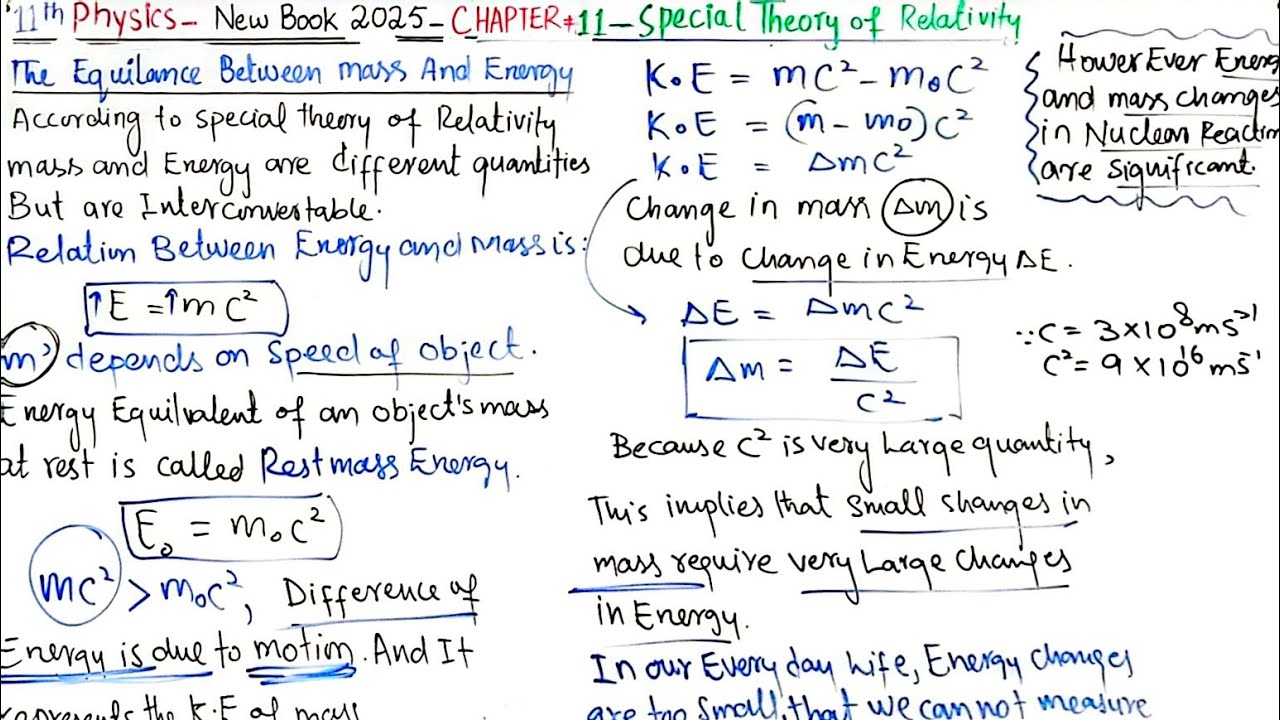 11th Physics- New Book 2025- CHAPTER#11-Special Theory of Relativity
The Equilance Between mass And Energy
According to special theory of Relativity
mass and Energy are different quantities
But are Interconvertable.
Relation Between Energy and Mass is:
↑E = ↑mc²
m' depends on Speed of object.
Energy Equilvalent of an object's mass
at rest is called Rest mass Energy.
E₀ = m₀c²
mc² > m₀c², Difference of
Energy is due to motion. And It
represents the K.E of mass
K.E = mc² - m₀c²
K.E = (m - m₀)c²
K.E = Δmc²
Change in mass Δm is
due to change in Energy ΔE.
ΔE = Δmc²
Δm = ΔE/c²
Because c² is very Large quantity,
This implies that small changes in
mass require very Large changes
in Energy.
In our Every day Life, Energy changes
are too small, that we cannot measure
HowerEver Energ
and mass changes
in Nuclear Reaction
are significant.
∵ c = 3×10⁸ms⁻¹
c² = 9×10¹⁶ms⁻¹